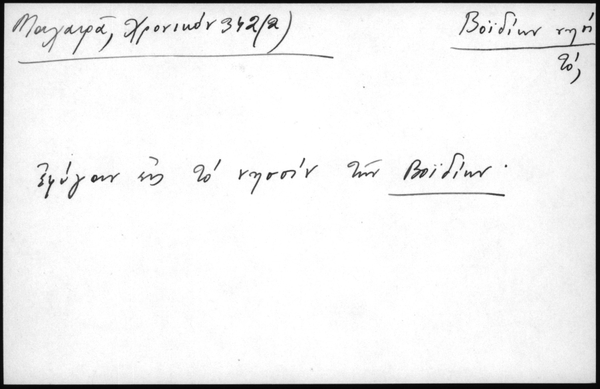 Μαχαιρᾶ, Χρονικόν 342(2)
Βοϊδίων νησί
τό,
ἐφύγαν εἰς τό νησσίν τῶν Βοϊδίων.